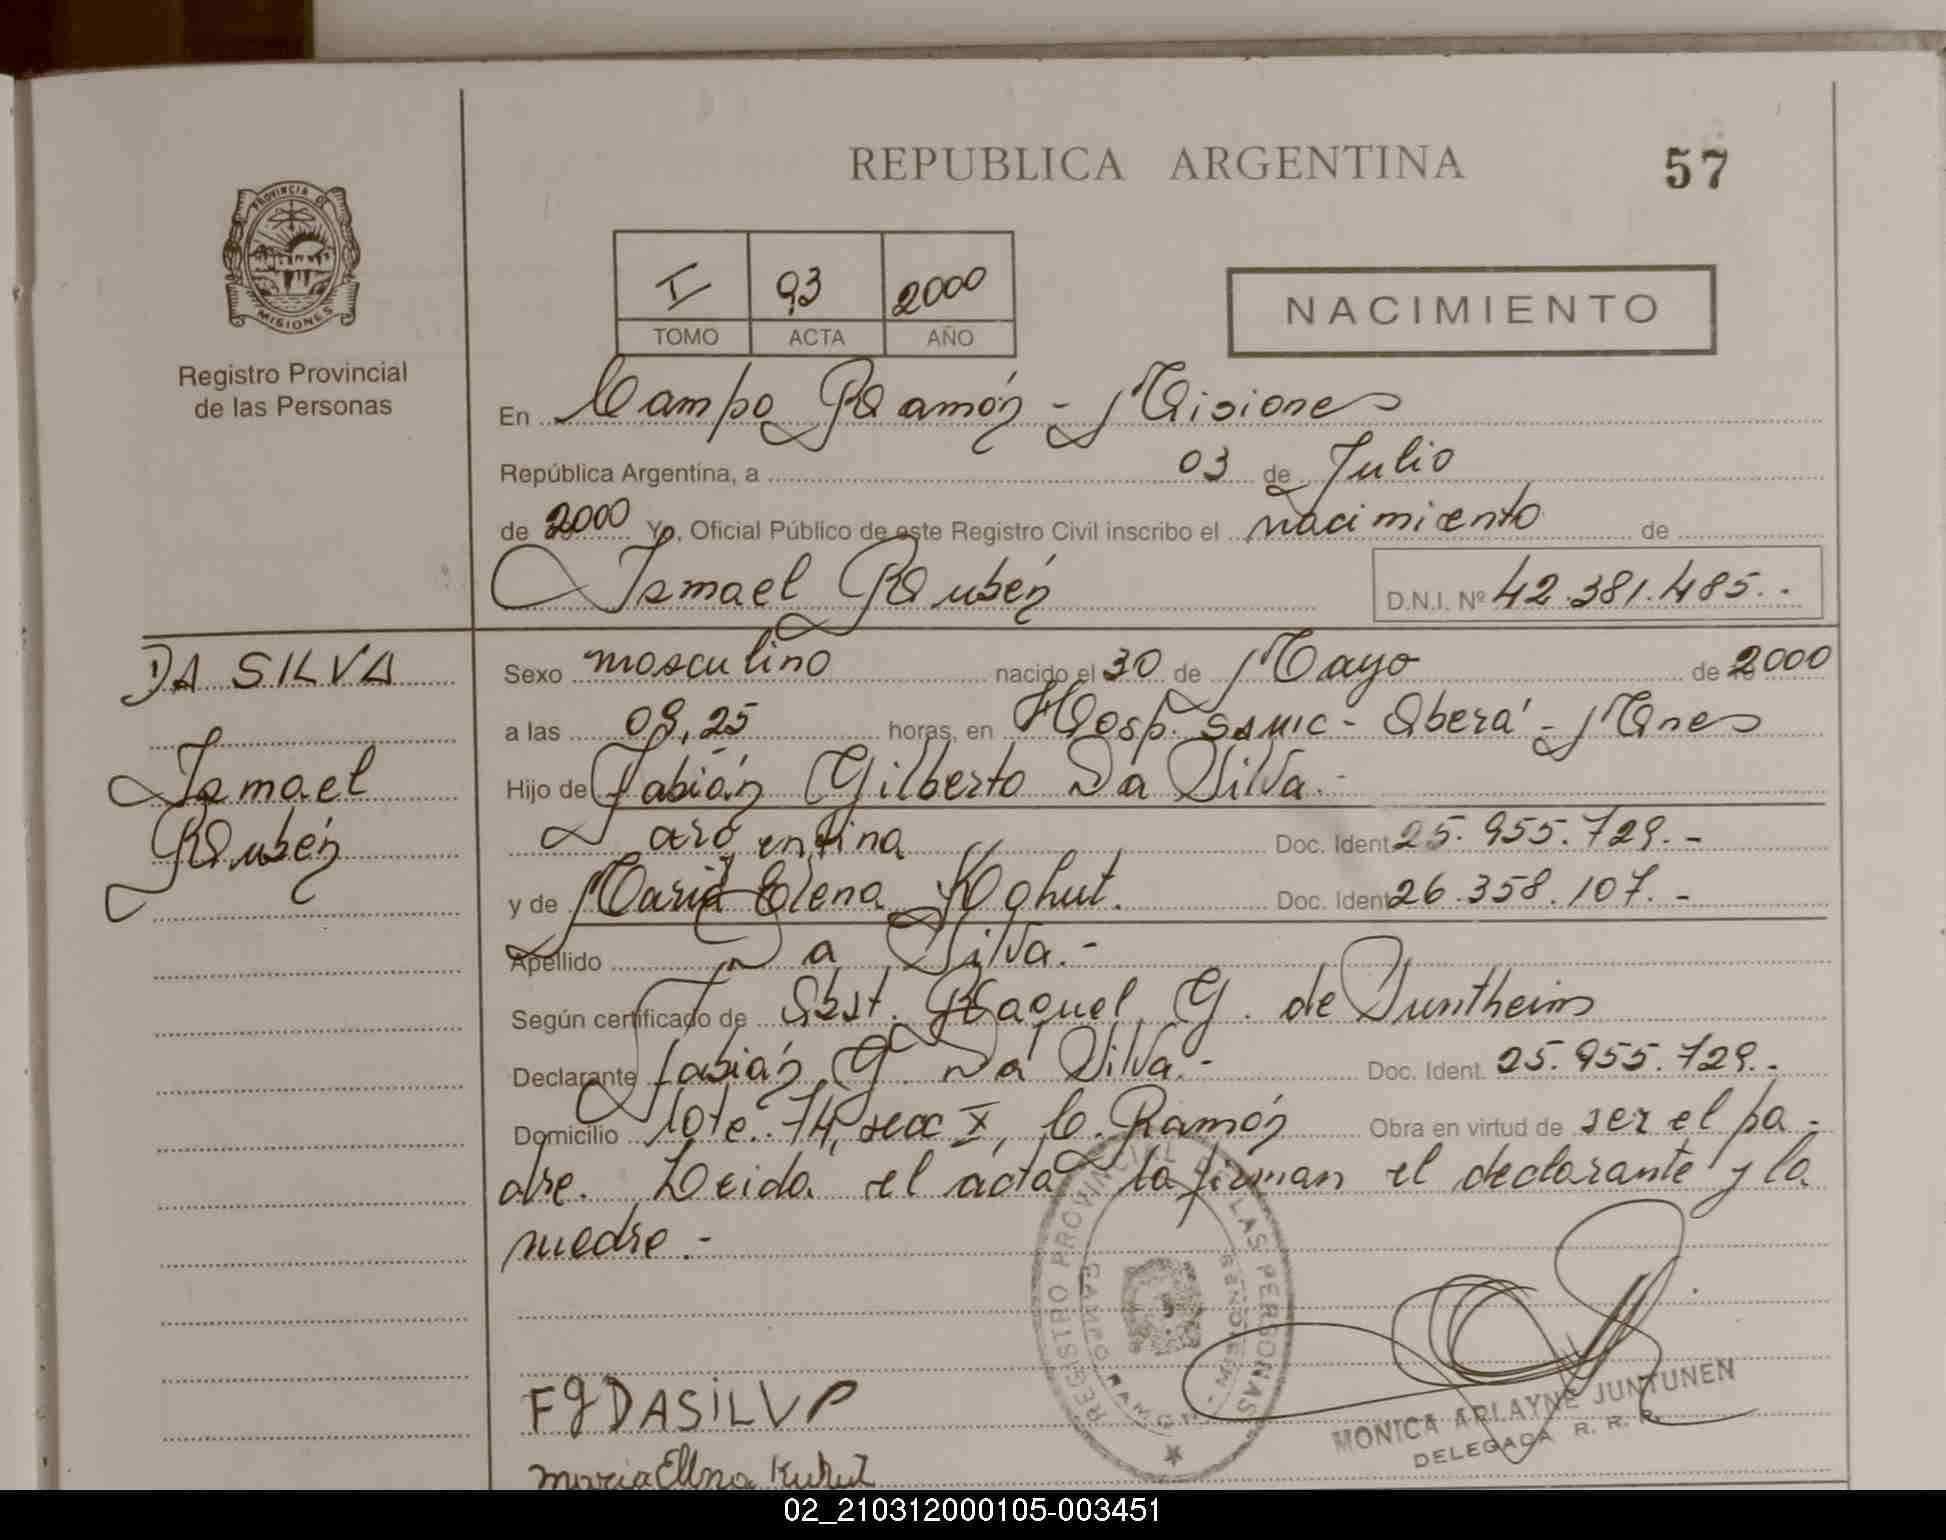 REPUBLICA ARGENTINA
57
PROVINCIA DE
MISIONES
Registro Provincial
de las Personas
I 93 2000
TOMO ACTA AÑO
NACIMIENTO
En Campo Ramón - Misiones
República Argentina, a 03 de Julio
de 2000 Yo, Oficial Público de este Registro Civil inscribo el nacimiento de
Ismael Rubén D.N.I. Nº 42.381.485.-
DA SILVA
Ismael
Rubén
Sexo masculino nacido el 30 de Mayo de 2000
a las 09,25 horas, en Hosp. SAMIC - Oberá - Mnes
Hijo de Fabián Gilberto Da Silva.-
argentina Doc. Ident. 25.955.729.-
y de María Elena Kohut. Doc. Ident. 26.358.107.-
Apellido Da Silva.-
Según certificado de Obst. Raquel G. de
Declarante Fabián G. Da Silva.- Doc. Ident. 25.955.729.-
Domicilio lote 74, secc X, C. Ramón Obra en virtud de ser el pa-
dre. Leida el acta la firman el declarante y la
madre.-
REGISTRO PROVINCIAL DE LAS PERSONAS
CAMPO RAMON - MISIONES
FgDASiLVA
MONICA ARLAYNE JUNTUNEN
DELEGADA R. R. P.
Maria Elena Kuhut
02_210312000105-003451